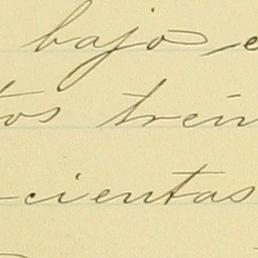 bajo e
tos trein
cientas